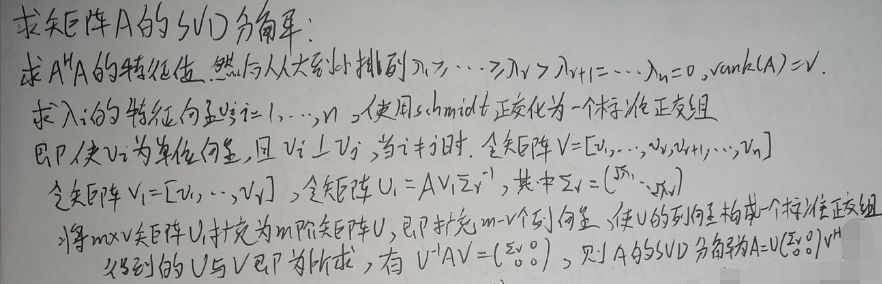 求矩阵A的SVD分解:
求AᴴA的特征值,然后从大到小排列λ₁≥⋯≥λr>λr+1=⋯λn=0,rank(A)=r.
求λi的特征向量vi,i=1,⋯,n,使用schmidt正交化为一个标准正交组
即使vi为单位向量,且vi⊥vj,当i≠j时.令矩阵V=[v₁,⋯,vr,vr+1,⋯,vn]
令矩阵V₁=[v₁,⋯,vr],令矩阵U₁=AV₁Σr⁻¹,其中Σr=(√λ₁ ⋱ √λr)
将m×r矩阵U₁扩充为m阶矩阵U,即扩充m-r个列向量,使U的列向量构成一个标准正交组
得到的U与V即为所求,有U⁻¹AV=(Σr 0 0 0),则A的SVD分解为A=U(Σr 0 0 0)Vᴴ